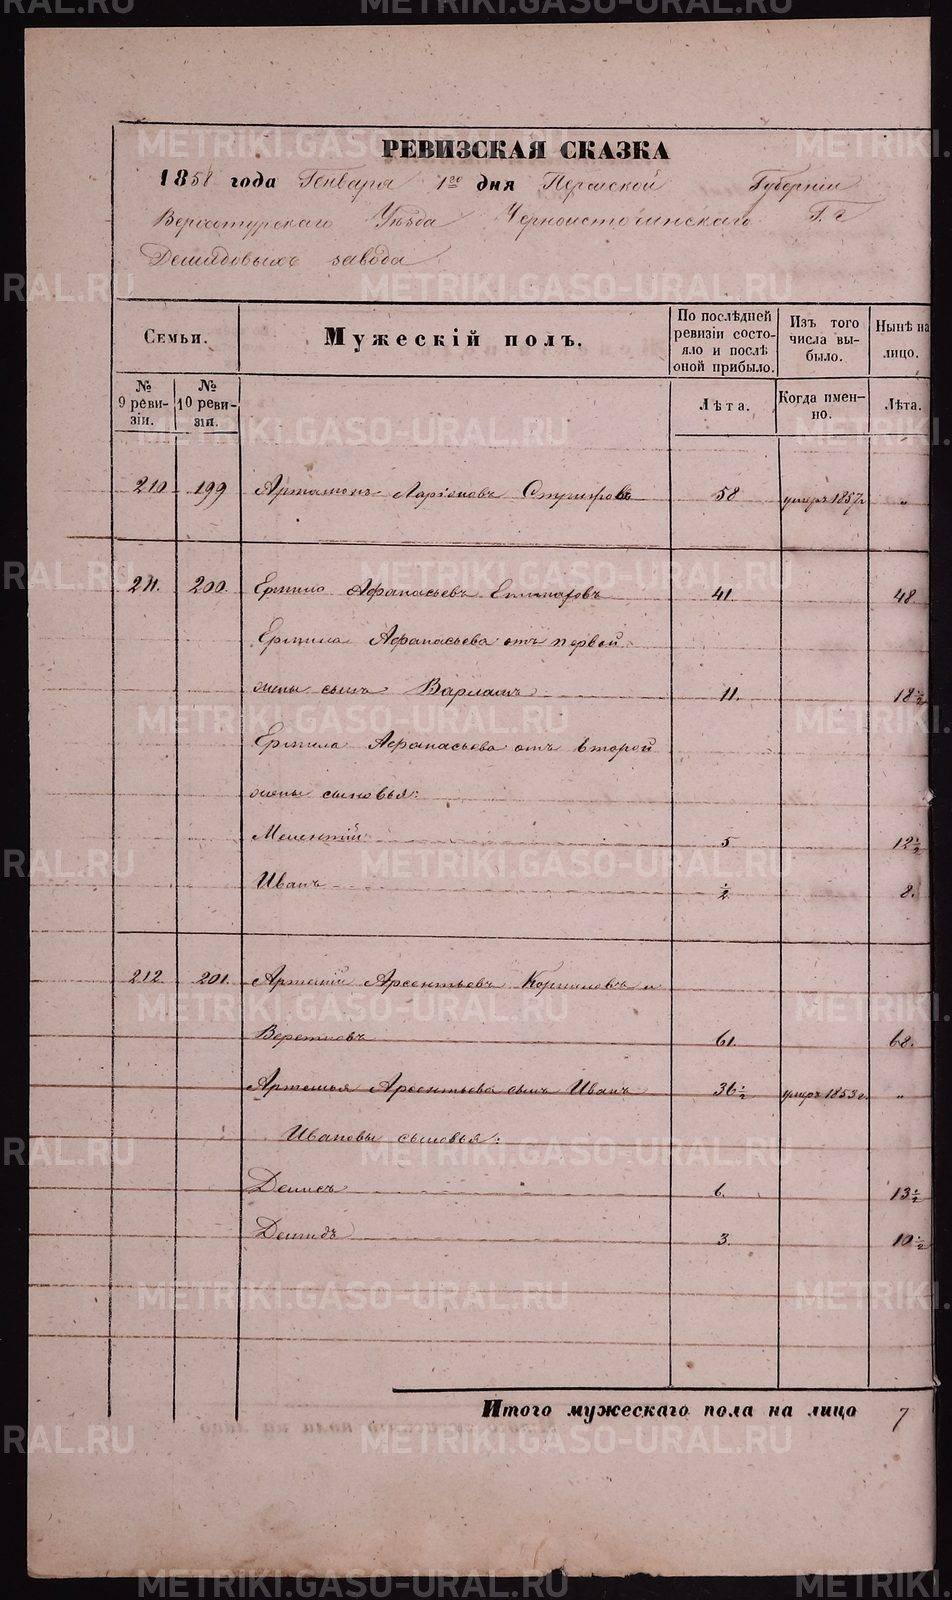 РЕВИЗСКАЯ СКАЗКА
1858 года Генваря 1го дня Пермской Губернии
Верхотурскаго Уѣзда Черноисточинскаго Г.г.
Демидовыхъ завода
Семьи.
Мужескій полъ.
По послѣдней ревизіи состояло и послѣ оной прибыло.
Изъ того числа выбыло.
Нынѣ на лицо.
№ 9 ревизіи.
№ 10 ревизіи.
Лѣта.
Когда именно.
Лѣта.
210 199 Артамонъ Ларіоновъ 58 умеръ 1857г „
211. 200. Ермило Афанасьевъ 41. 48.
Ермила Афанасьева отъ первой
жены сынъ Варламъ 11. 18 1/2
Ермила Афанасьева отъ второй
жены сыновья:
Мелентій 5 12 1/2
Иванъ 1/2 8.
212. 201. Артемій Арсентьевъ Коршаловъ и
Веретновъ 61. 68.
Артемья Арсентьева сынъ Иванъ 36 1/2 умеръ 1853г. „
Ивановы сыновья:
Денисъ 6. 13 1/2
Демидъ 3. 10 1/2
Итого мужескаго пола на лицо 7
METRIKI.GASO-URAL.RU